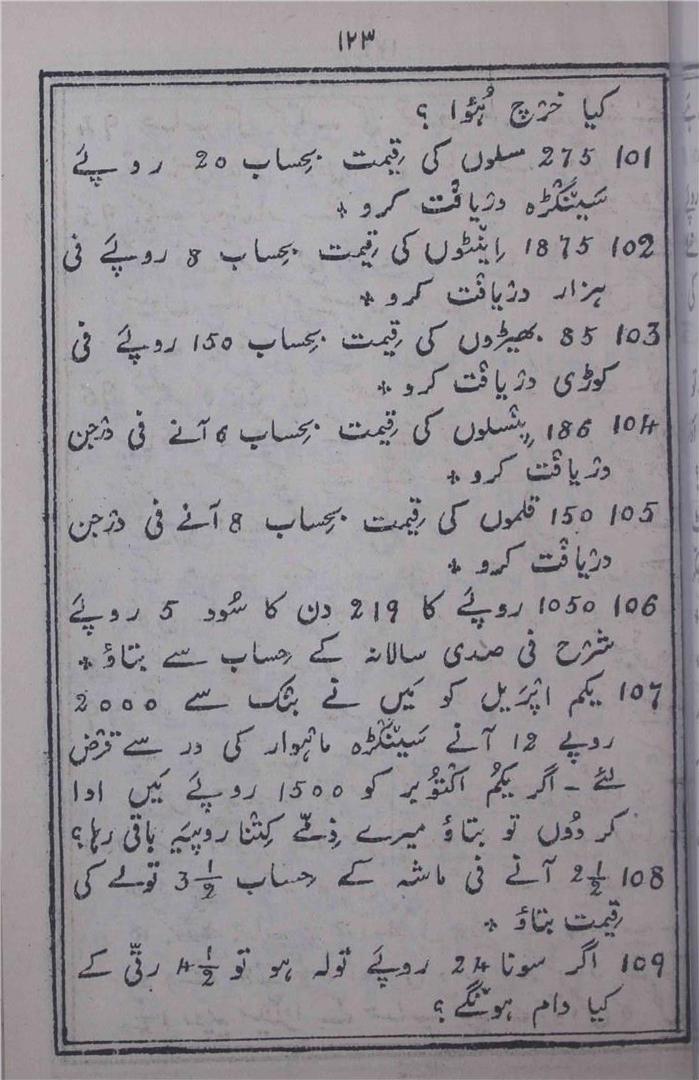 ۱۲۳
کیا خرْچ ہُئوا ؟
101 275 سلوں کی قِیمت بحِساب 20 روپئے
سَینْکڑہ درْیافْت کرو +
102 1875 اِینْٹوں کی قِیمت بحِساب 8 روپئے فی
ہزار درْیافْت کرو +
103 85 بھیڑوں کی قِیمت بحِساب 150 روپئے فی
کوڑی درْیافْت کرو +
104 186 پِنْسلوں کی قِیمت بحِساب 6 آنے فی درْجن
درْیافْت کرو +
105 150 قلموں کی قِیمت بحِساب 8 آنے فی درْجن
درْیافْت کرو +
106 1050 روپئے کا 219 دن کا سُود 5 روپئے
شرْح فی صدی سالانہ کے حِساب سے بتاؤ +
107 یکم اپْریل کو مَیں نے بنْک سے 2000
روپے 12 آنے سَینْکڑہ ماہْوار کی در سے قرْض
لئے ۔ اگر یکُم اکْتُوبر کو 1500 روپئے مَیں ادا
کر دُوں تو بتاؤ میرے ذِمّے کِتْنا روپیہ باقی رہا؟
108 2½ آنے فی ماشہ کے حِساب 3½ تولے کی
قِیمت بتاؤ +
109 اگر سونا 24 روپئے تولہ ہو تو 4½ رتّی کے
کیا دام ہونْگے ؟